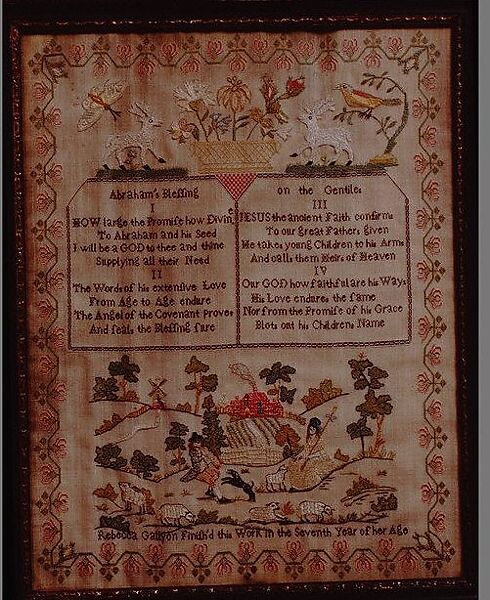 Abraham's Bleſſing on the Gentiles
I
HOW large the Promiſe how Divine
To Abraham and his Seed
I will be a GOD to thee and thine
Supplying all their Need
II
The Words of his extenſive Love
From Age to Age endure
The Angel of the Covenant proves
And ſeals the Bleſſing ſure
III
JESUS the ancient Faith confirms
To our great Fathers given
He takes young Children to his Arms
And calls them Heirs of Heaven
IV
Our GOD how faithful are his Ways
His Love endures the ſame
Nor from the Promiſe of his Grace
Blots out his Childrens Name
Rebecca Gallyon Finiſh'd this Work in the Seventh Year of her Age